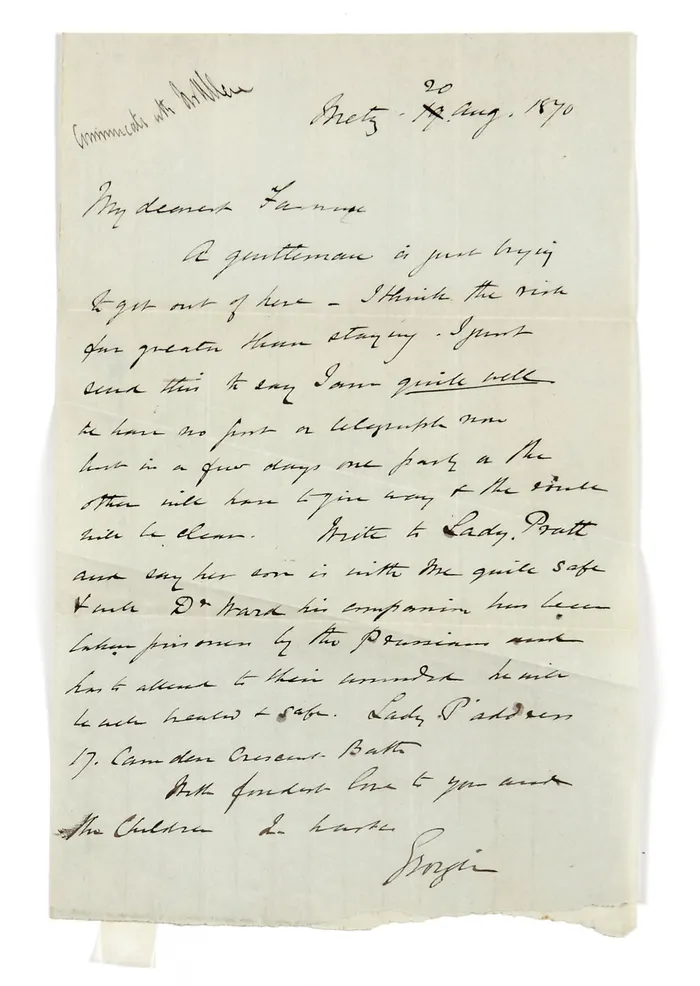 Communicate with
Metz - 20 19. Aug. 1870
My dearest Fanny
A gentleman is just trying
to get out of here - I think the risk
far greater than staying. I just
send this to say I am quite well
We have no post or telegraph now
but in a few days one party or the
other will have to give way & the route
will be clear. Write to Lady Pratt
and say her son is with me quite safe
& well Dr Ward his companion has been
taken prisoner by the Prussians and
has to attend to their wounded he will
be well treated & safe. Lady P's address
17. Camden Crescent Bath
With fondest love to you and
the Children In haste